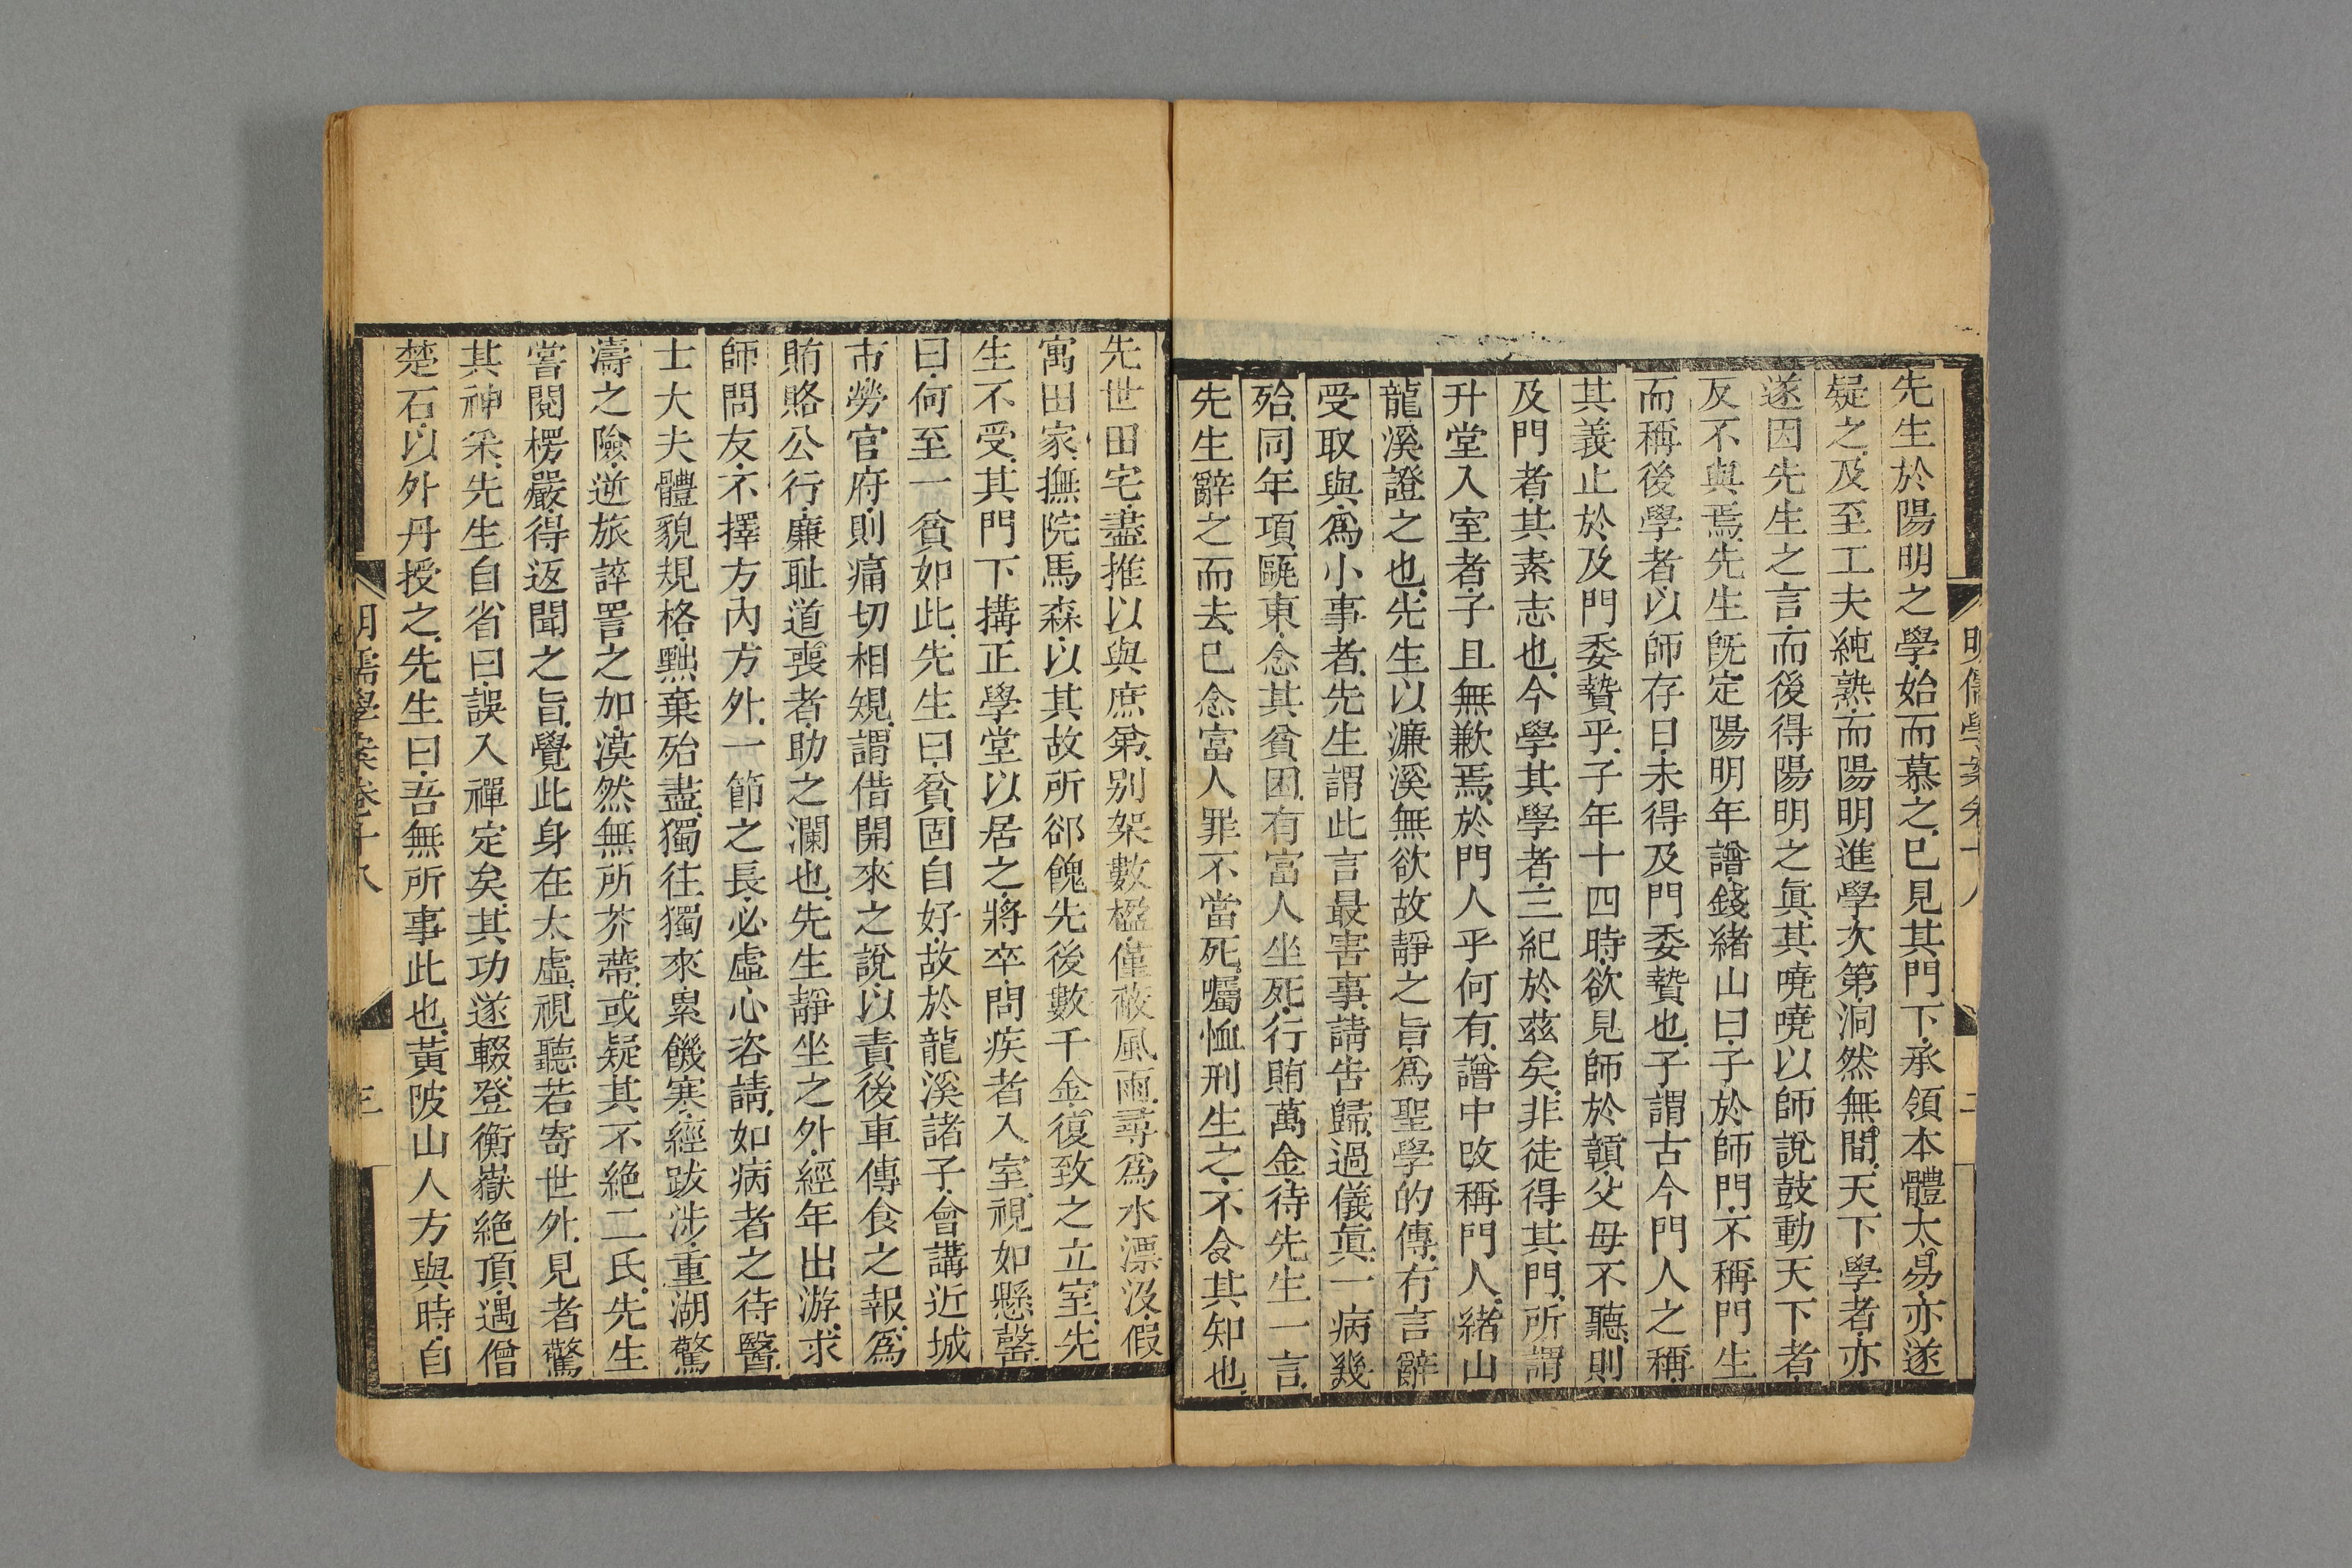 明儒學案卷十八
二
先生於陽明之學始而慕之已見其門下承領本體太易亦遂
疑之及至工夫純熟而陽明進學次第洞然無間天下學者亦
遂因先生之言而後得陽明之眞其嘵嘵以師說鼓動天下者
反不與焉先生旣定陽明年譜錢緒山曰子於師門不稱門生
而稱後學者以師存日未得及門委贄也子謂古今門人之稱
其義止於及門委贄乎子年十四時欲見師於贛父母不聽則
及門者其素志也今學其學者三紀於茲矣非徒得其門所謂
升堂入室者子且無歉焉於門人乎何有譜中改稱門人緒山
龍溪證之也先生以濂溪無欲故靜之旨爲聖學的傳有言辭
受取與爲小事者先生謂此言最害事請告歸過儀眞一病幾
殆同年項甌東念其貧困有富人坐死行賄萬金待先生一言
先生辭之而去已念富人罪不當死囑恤刑生之不令其知也
先世田宅盡推以與庶弟别架數楹僅蔽風雨尋爲水漂沒假
寓田家撫院馬森以其故所卻餽先後數千金復致之立室先
生不受其門下搆正學堂以居之將卒問疾者入室視如懸罄
曰何至一貧如此先生曰貧固自好故於龍溪諸子會講近城
市勞官府則痛切相規謂借開來之說以責後車傳食之報爲
賄賂公行廉耻道喪者助之瀾也先生靜坐之外經年出游求
師問友不擇方內方外一節之長必虛心咨請如病者之待醫
士大夫體貌規格黜棄殆盡獨往獨來累饑寒經跋涉重湖驚
濤之險逆旅誶詈之加漠然無所芥蔕或疑其不絶二氏先生
嘗閱楞嚴得返聞之旨覺此身在太虛視聽若寄世外見者驚
其神采先生自省曰誤入禪定矣其功遂輟登衡嶽絶頂遇僧
楚石以外丹授之先生曰吾無所事此也黃陂山人方與時自
明儒學案卷十八
三